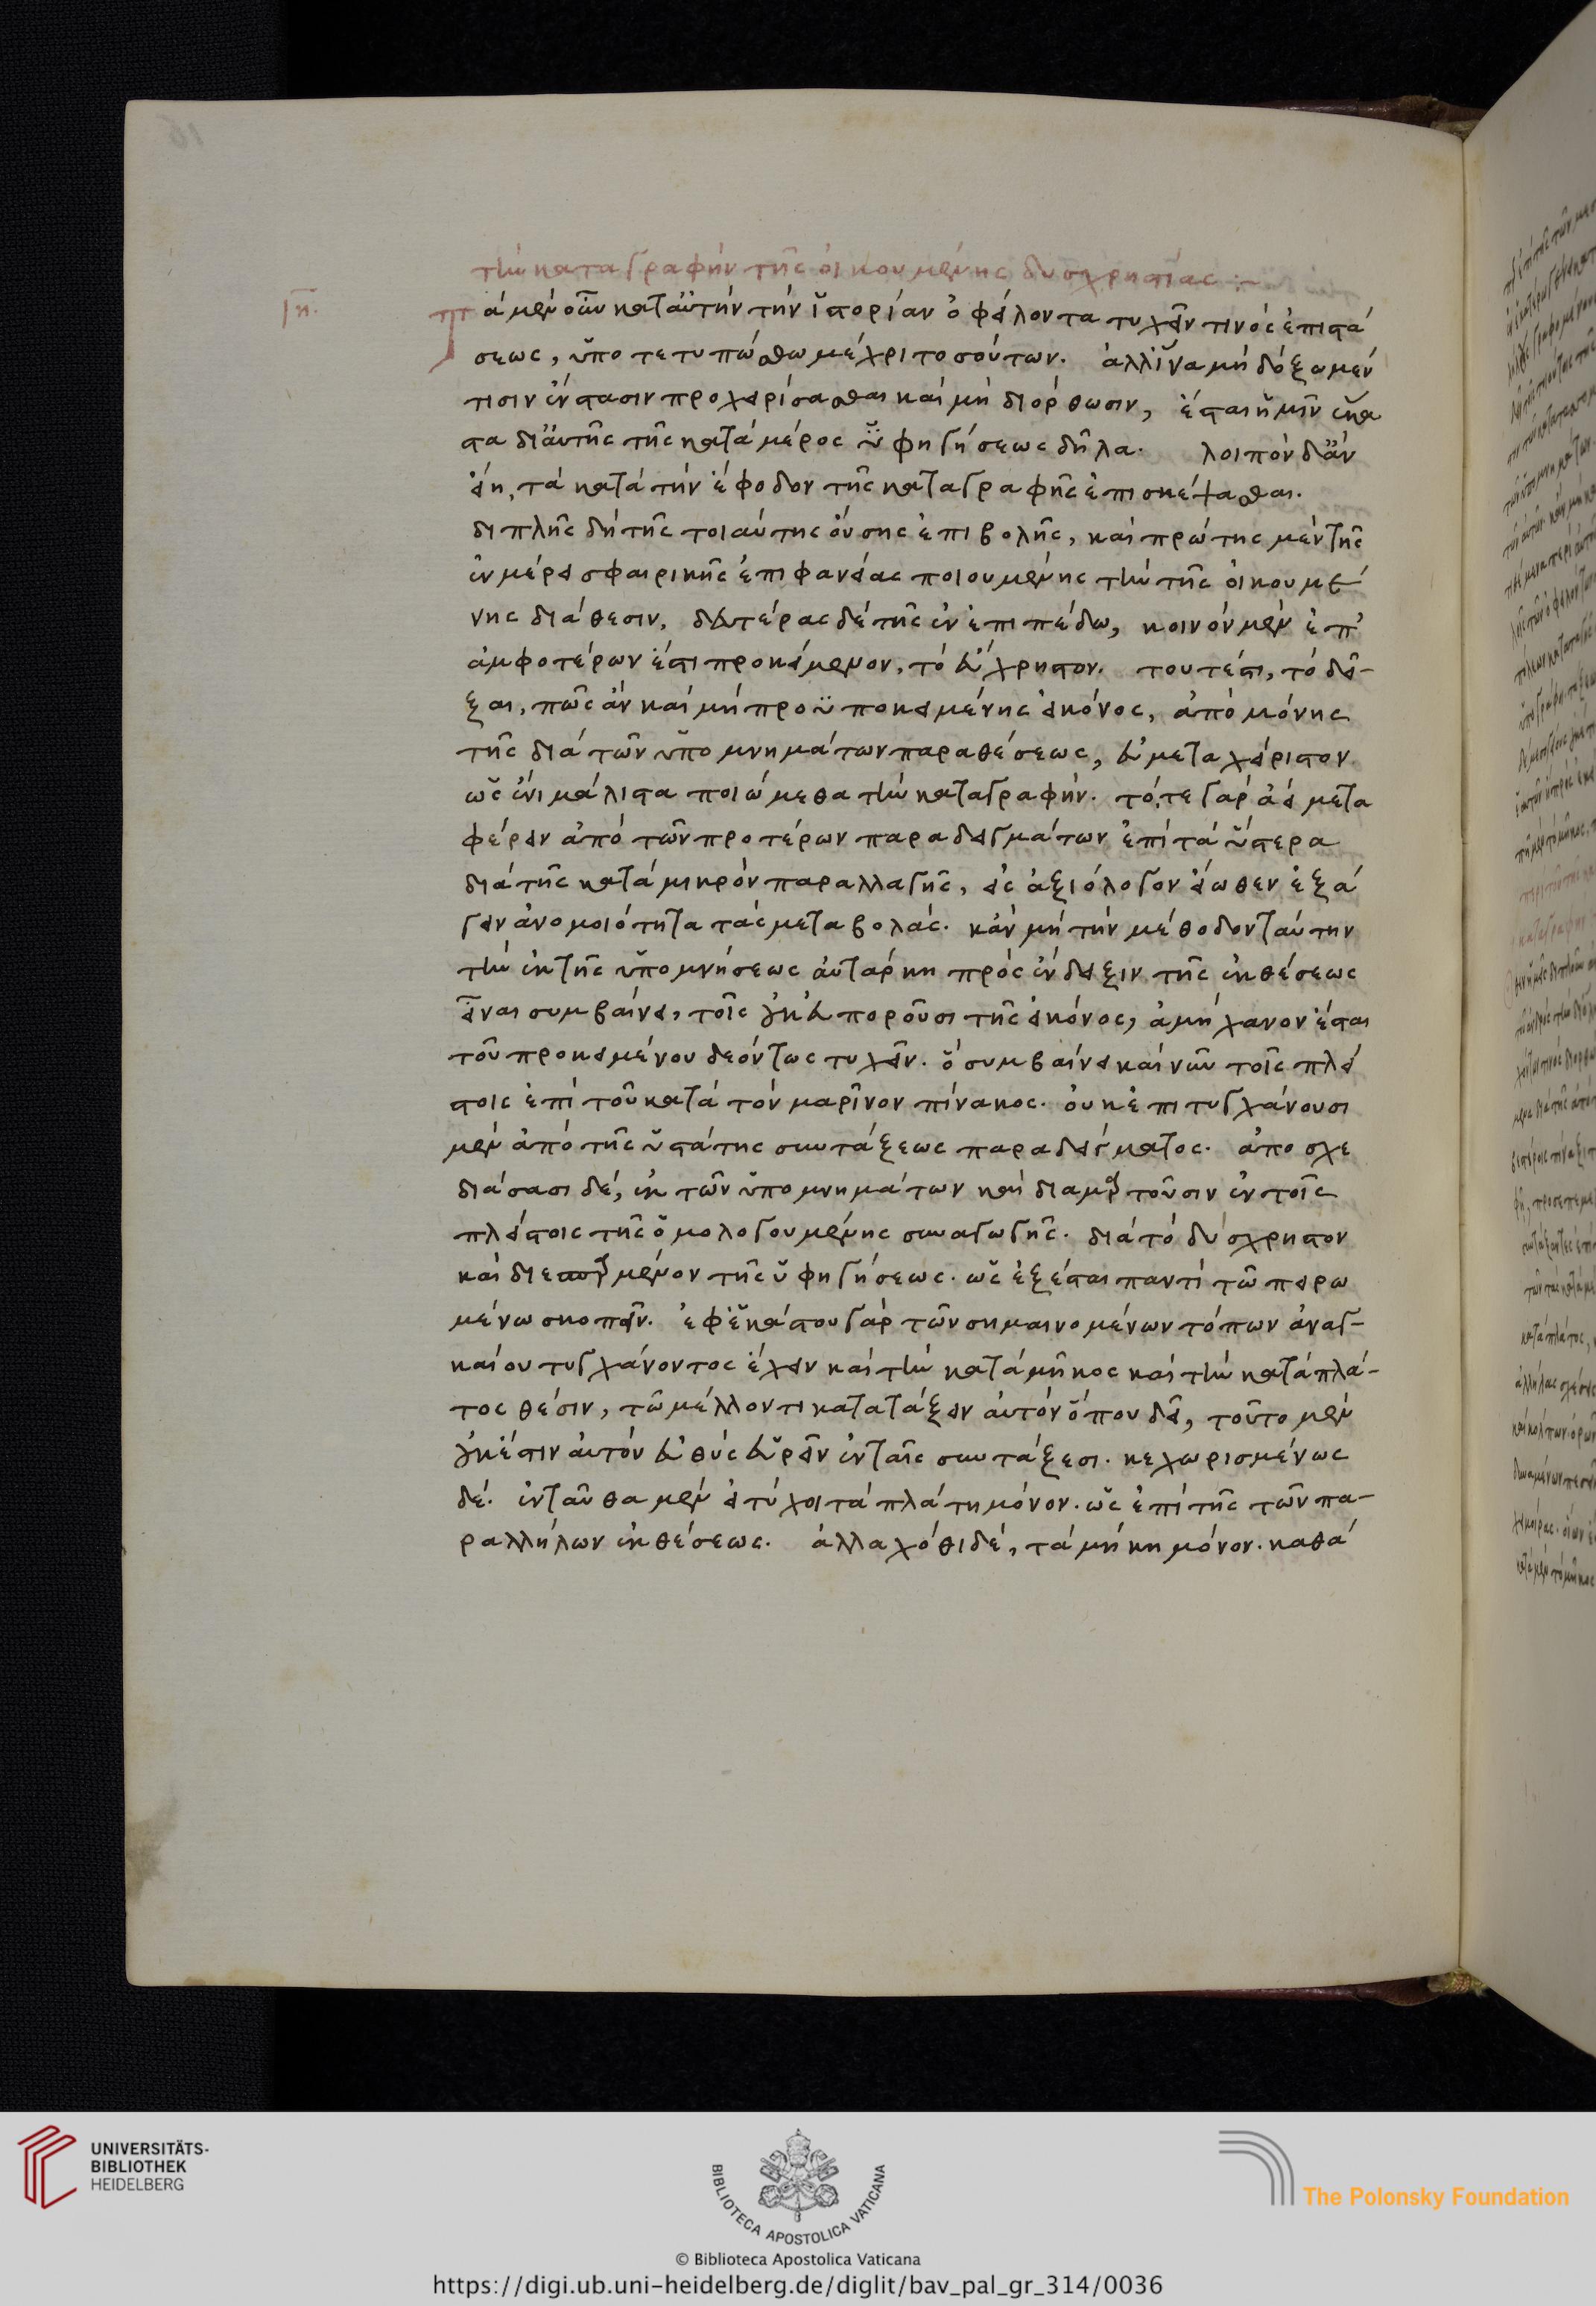 τὴν καταγραφὴν τῆς οἰκουμένης δυσχρηστίας :~
ιη.
τὰ μὲν οὖν κατ' αὐτὴν τὴν ἱστορίαν ὀφείλοντα τυχεῖν τινὸς ἐπιστά
σεως, ὑποτετυπώσθω μέχρι τοσούτων. ἀλλ' ἵνα μὴ δόξωμέν
τισιν ἔνστασιν προχειρίσασθαι καὶ μὴ διόρθωσιν, ἔσται ἡμῖν ἕκα
στα δι' αὐτῆς τῆς κατὰ μέρος ὑφηγήσεως δῆλα. λοιπὸν δ' ἂν
εἴη, τὰ κατὰ τὴν ἔφοδον τῆς καταγραφῆς ἐπισκέψασθαι.
διπλῆς δὴ τῆς τοιαύτης οὔσης ἐπιβολῆς, καὶ πρώτης μὲν τῆς
ἐν μέρει σφαιρικῆς ἐπιφανείας ποιουμένης τὴν τῆς οἰκουμέ
νης διάθεσιν, δευτέρας δὲ τῆς ἐν ἐπιπέδω, κοινὸν μὲν ἐπ'
ἀμφοτέρων ἐστι προκείμενον, τὸ εὔχρηστον. τουτέστι, τὸ δεῖ-
ξαι, πῶς ἂν καὶ μὴ προϋποκειμένης εἰκόνος, ἀπὸ μόνης
τῆς διὰ τῶν ὑπομνημάτων παραθέσεως, εὐμεταχείριστον
ὡς ἔνι μάλιστα ποιώμεθα τὴν καταγραφήν. τό, τε γὰρ ἀεὶ μετα
φέρειν ἀπὸ τῶν προτέρων παραδειγμάτων ἐπὶ τὰ ὕστερα
διὰ τῆς κατὰ μικρὸν παραλλαγῆς, εἰς ἀξιόλογον εἴωθεν ἐξά
γειν ἀνομοιότητα τὰς μεταβολάς. κἂν μὴ τὴν μέθοδον ταύτην
τὴν ἐκ τῆς ὑπομνήσεως αὐτάρκη πρὸς ἔνδειξιν τῆς ἐκθέσεως
εἶναι συμβαίνει, τοῖς οὐκ εὐποροῦσι τῆς εἰκόνος, ἀμήχανον ἔσται
τοῦ προκειμένου δεόντως τυχεῖν. ὃ συμβαίνει καὶ νῦν τοῖς πλεί
στοις ἐπὶ τοῦ κατὰ τὸν μαρῖνον πίνακος. οὐκ ἐπιτυγχάνουσι
μὲν ἀπὸ τῆς ὑστάτης συντάξεως παραδείγματος. ἀποσχε
διάσασι δέ, ἐκ τῶν ὑπομνημάτων καὶ διαμαρτοῦσιν ἐν τοῖς
πλείστοις τῆς ὁμολογουμένης συναγωγῆς. διὰ τὸ δύσχρηστον
καὶ διεσπαρμένον τῆς ὑφηγήσεως. ὡς ἐξέσται παντὶ τῶ πειρω
μένω σκοπεῖν. ἐφ' ἑκάστου γὰρ τῶν σημαινομένων τόπων ἀναγ-
καίου τυγχάνοντος ἔχειν καὶ τὴν κατὰ μῆκος καὶ τὴν κατὰ πλά-
τος θέσιν, τῶ μέλλοντι κατατάξειν αὐτὸν ὅπου δεῖ, τοῦτο μὲν
οὐκ ἔστιν αὐτὸν εὐθὺς εὑρεῖν ἐν ταῖς συντάξεσι. κεχωρισμένως
δέ. ἐνταῦθα μὲν εἰ τύχοι τὰ πλάτη μόνον. ὡς ἐπὶ τῆς τῶν πα-
ραλλήλων ἐκθέσεως. ἀλλαχόθι δέ, τὰ μήκη μόνον. καθά
UNIVERSITÄTS-
BIBLIOTHEK
HEIDELBERG
BIBLIOTECA APOSTOLICA VATICANA
The Polonsky Foundation
© Biblioteca Apostolica Vaticana
https://digi.ub.uni-heidelberg.de/diglit/bav_pal_gr_314/0036